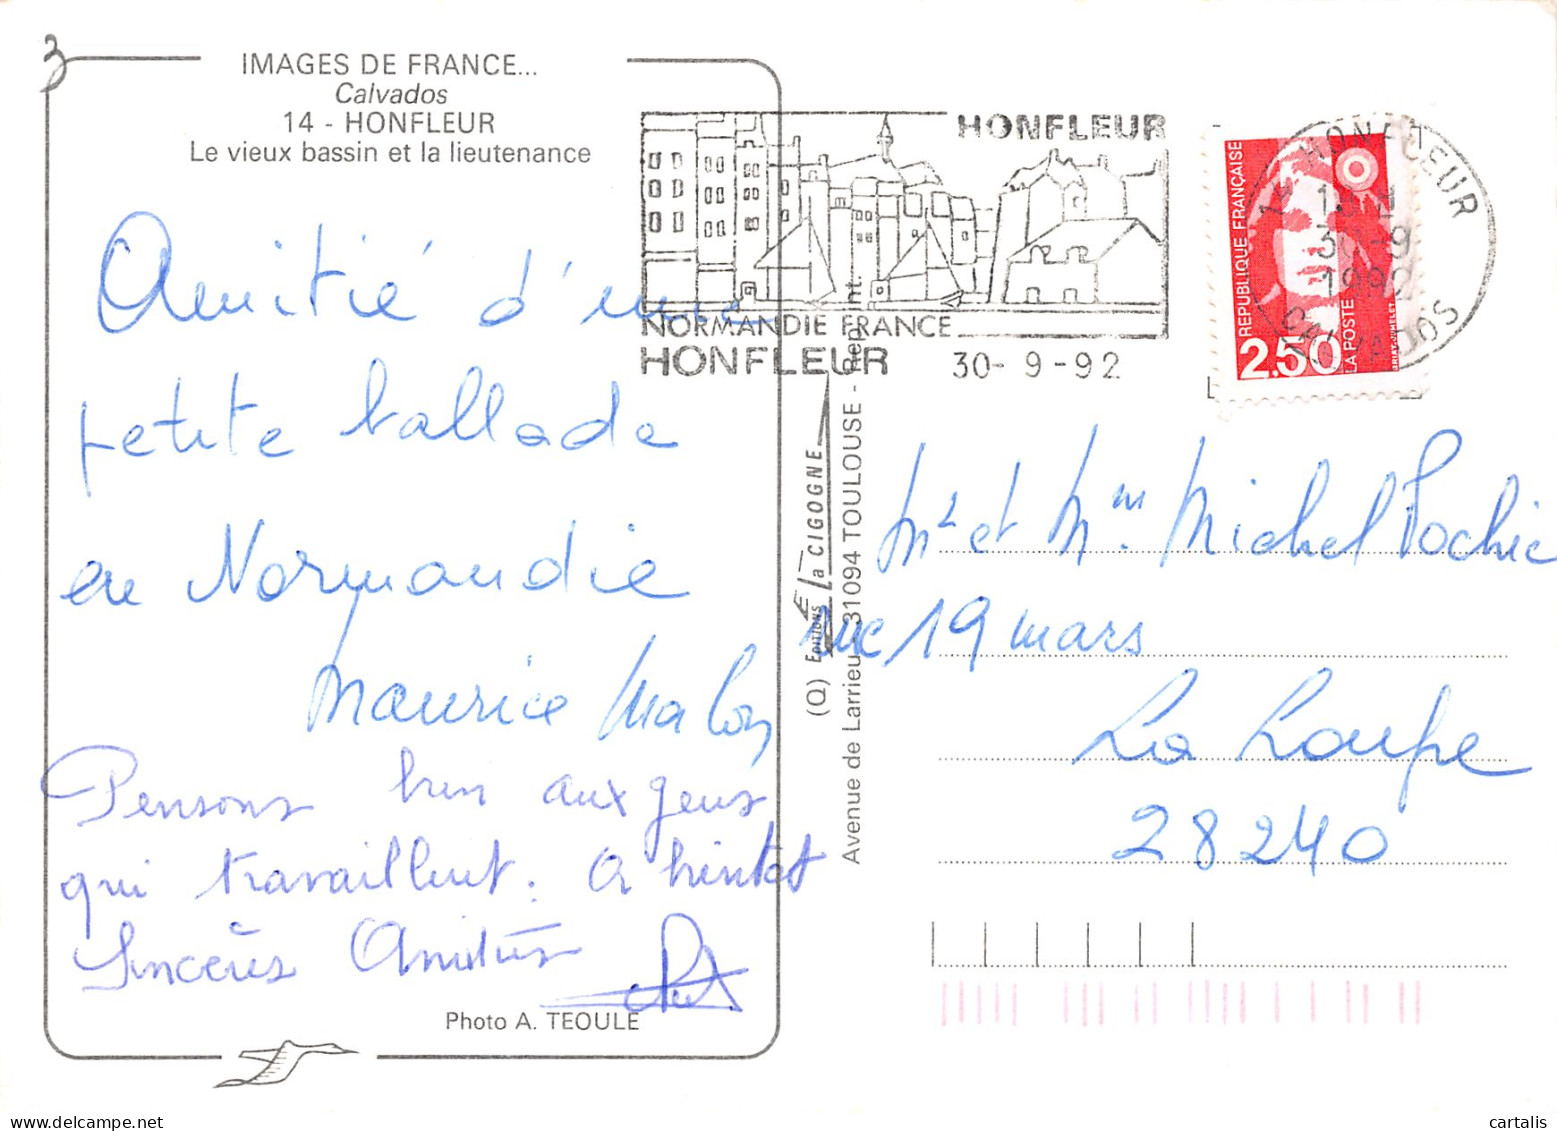 3
IMAGES DE FRANCE...
Calvados
14 - HONFLEUR
Le vieux bassin et la lieutenance
Amitié d'une
petite ballade
en Normandie
Maurice Malon
Pensons bien aux gens
qui travaillent. A bientot
Sincères Amitiés
Photo A. TEOULE
HONFLEUR
NORMANDIE FRANCE
HONFLEUR 30-9-92
REPUBLIQUE FRANÇAISE
2,50
LA POSTE
BRIAT-JUMELET
14 HONFLEUR
30-9
1992
CALVADOS
(Q) EDITIONS La CIGOGNE
Avenue de Larrieu - 31094 TOULOUSE - Rep. int.
Mr et Mme Michel Pochic
rue 19 mars
La Loupe
28240
cartalis